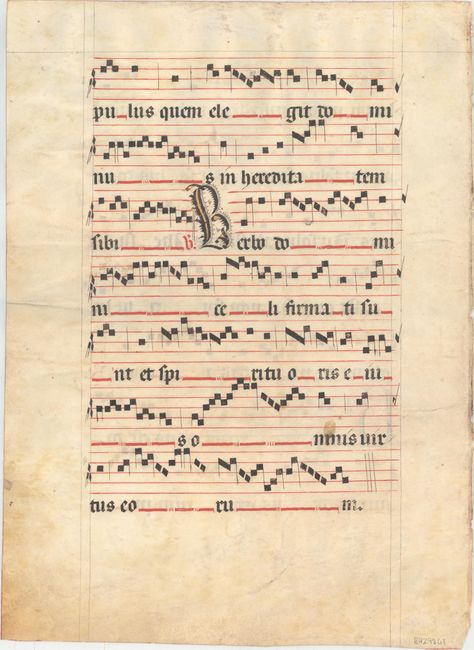 pu lus quem ele git do mi
nu s in heredita tem
sibi V. Verbo do mi
ni ce li firma ti su
nt et spi ritu o ris e iu
s o mnis vir
tus eo ru m.